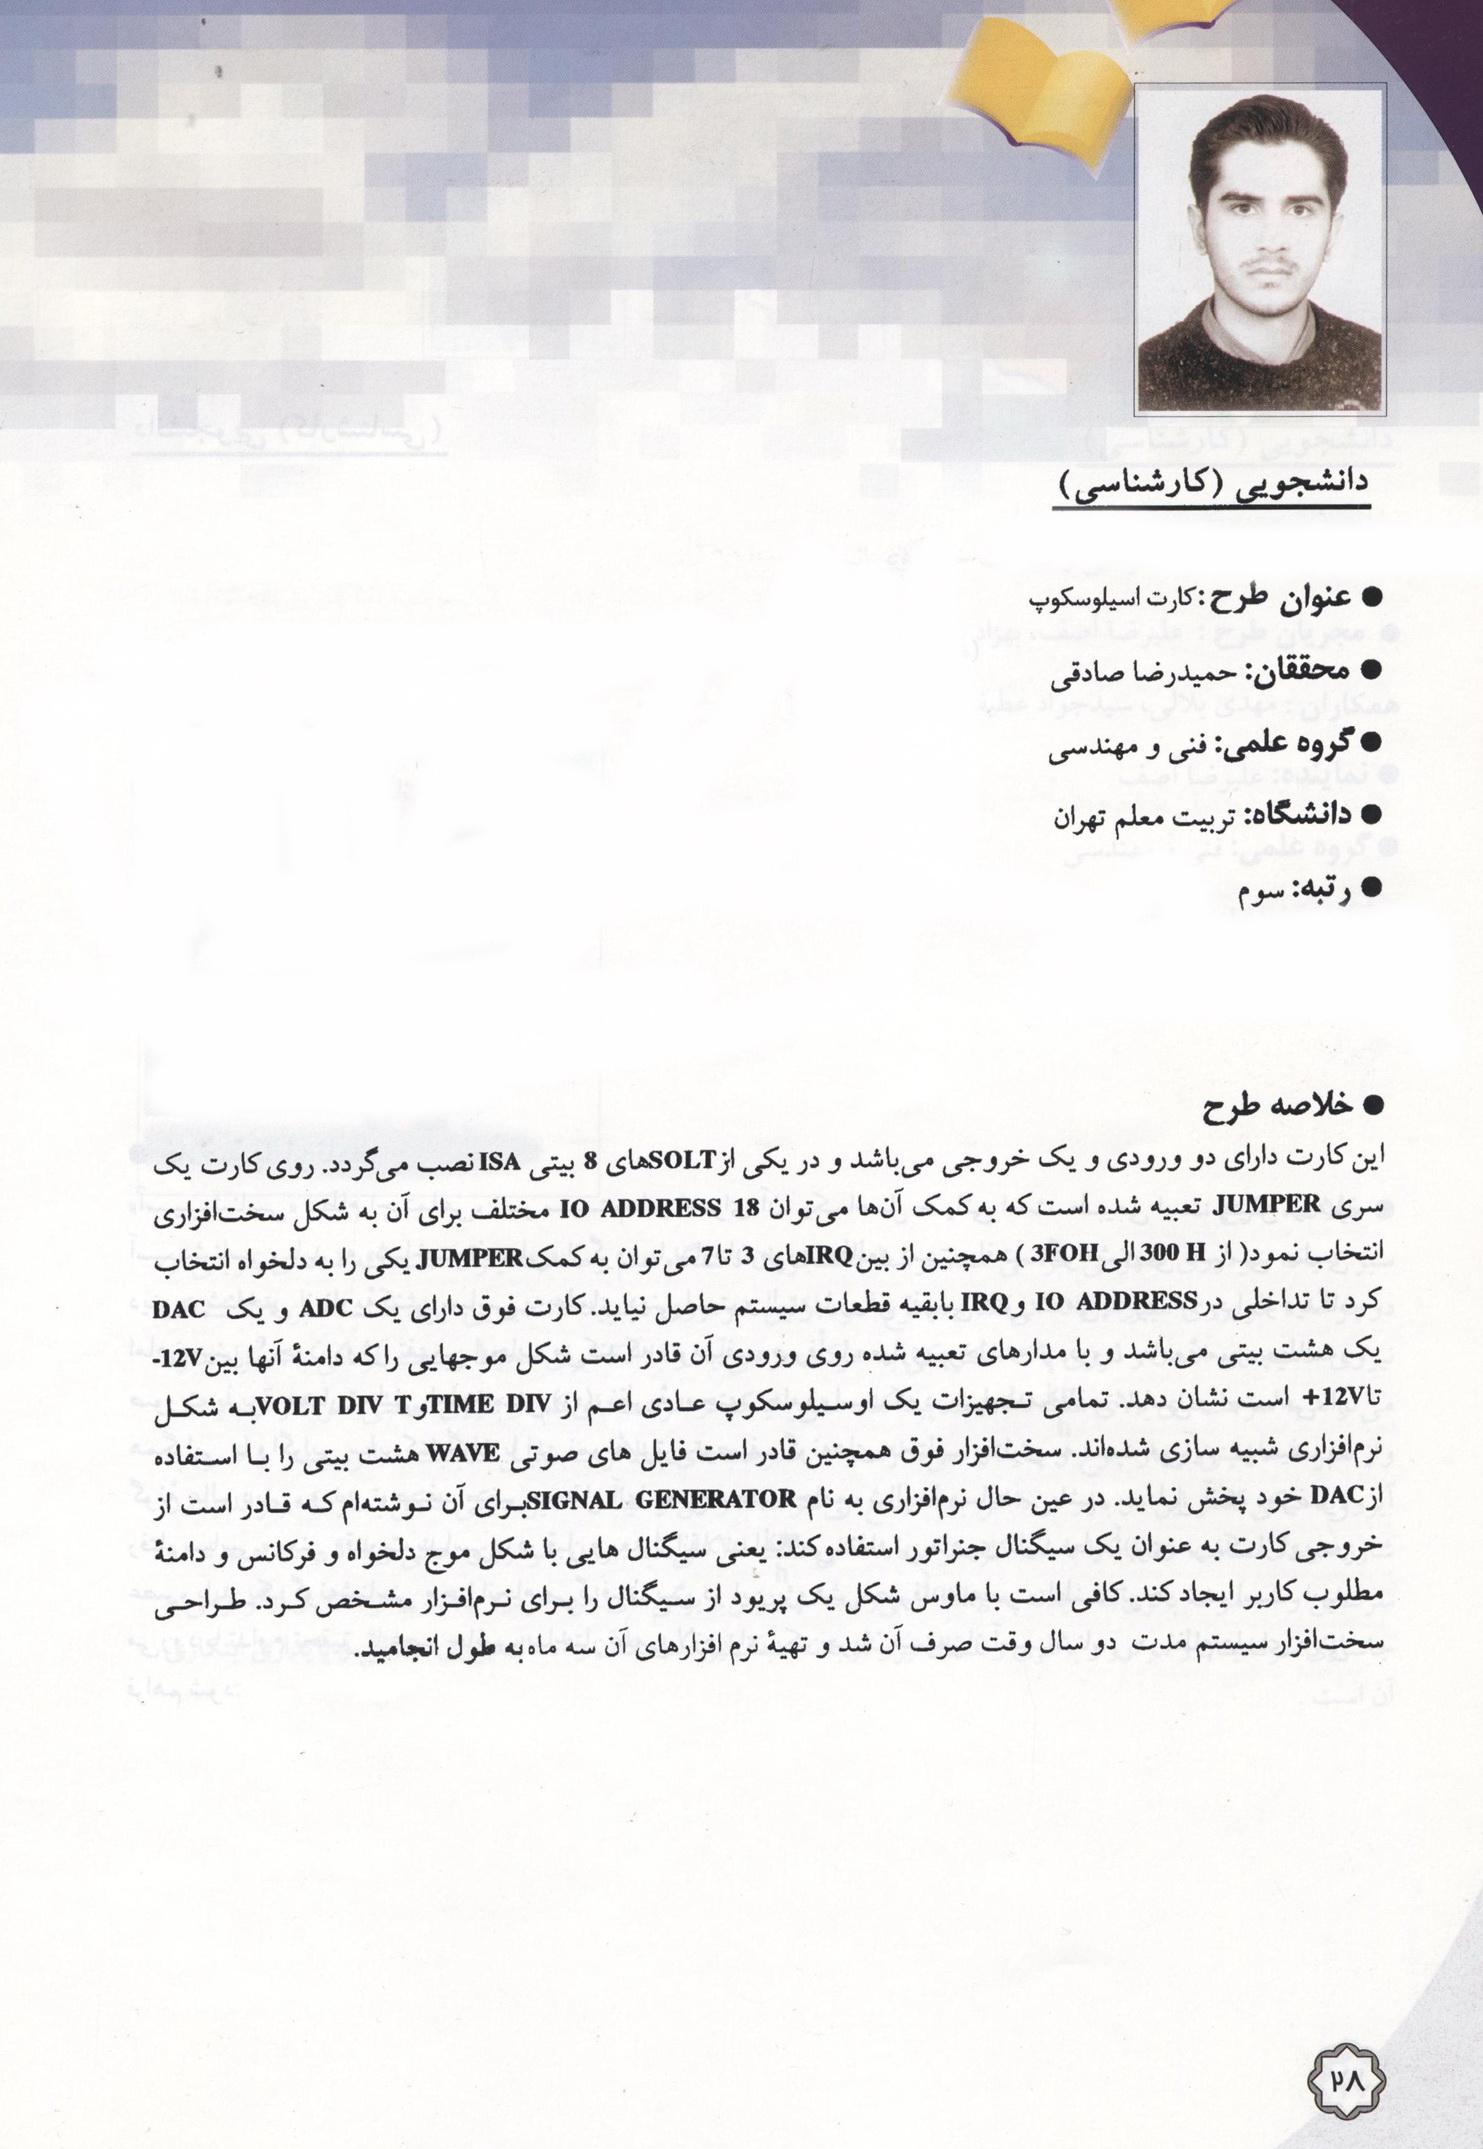 دانشجویی (کارشناسی)
● عنوان طرح: کارت اسیلوسکوپ
● محققان: حمیدرضا صادقی
● گروه علمی: فنی و مهندسی
● دانشگاه: تربیت معلم تهران
● رتبه: سوم
● خلاصه طرح
این کارت دارای دو ورودی و یک خروجی می‌باشد و در یکی از SOLTهای 8 بیتی ISA نصب می‌گردد. روی کارت یک
سری JUMPER تعبیه شده است که به کمک آن‌ها می‌توان 18 IO ADDRESS مختلف برای آن به شکل سخت‌افزاری
انتخاب نمود( از 300 H الی 3FOH ) همچنین از بین IRQهای 3 تا 7 می‌توان به کمک JUMPER یکی را به دلخواه انتخاب
کرد تا تداخلی در IO ADDRESS و IRQ با بقیه قطعات سیستم حاصل نیاید. کارت فوق دارای یک ADC و یک DAC
یک هشت بیتی می‌باشد و با مدارهای تعبیه شده روی ورودی آن قادر است شکل موجهایی را که دامنهٔ آنها بین 12V-
تا 12V+ است نشان دهد. تمامی تجهیزات یک اوسیلوسکوپ عادی اعم از TIME DIV و VOLT DIV T به شکل
نرم‌افزاری شبیه سازی شده‌اند. سخت‌افزار فوق همچنین قادر است فایل های صوتی WAVE هشت بیتی را با استفاده
از DAC خود پخش نماید. در عین حال نرم‌افزاری به نام SIGNAL GENERATOR برای آن نوشته‌ام که قادر است از
خروجی کارت به عنوان یک سیگنال جنراتور استفاده کند: یعنی سیگنال هایی با شکل موج دلخواه و فرکانس و دامنهٔ
مطلوب کاربر ایجاد کند. کافی است با ماوس شکل یک پریود از سیگنال را برای نرم‌افزار مشخص کرد. طراحی
سخت‌افزار سیستم مدت دو سال وقت صرف آن شد و تهیهٔ نرم افزارهای آن سه ماه به طول انجامید.
۲۸